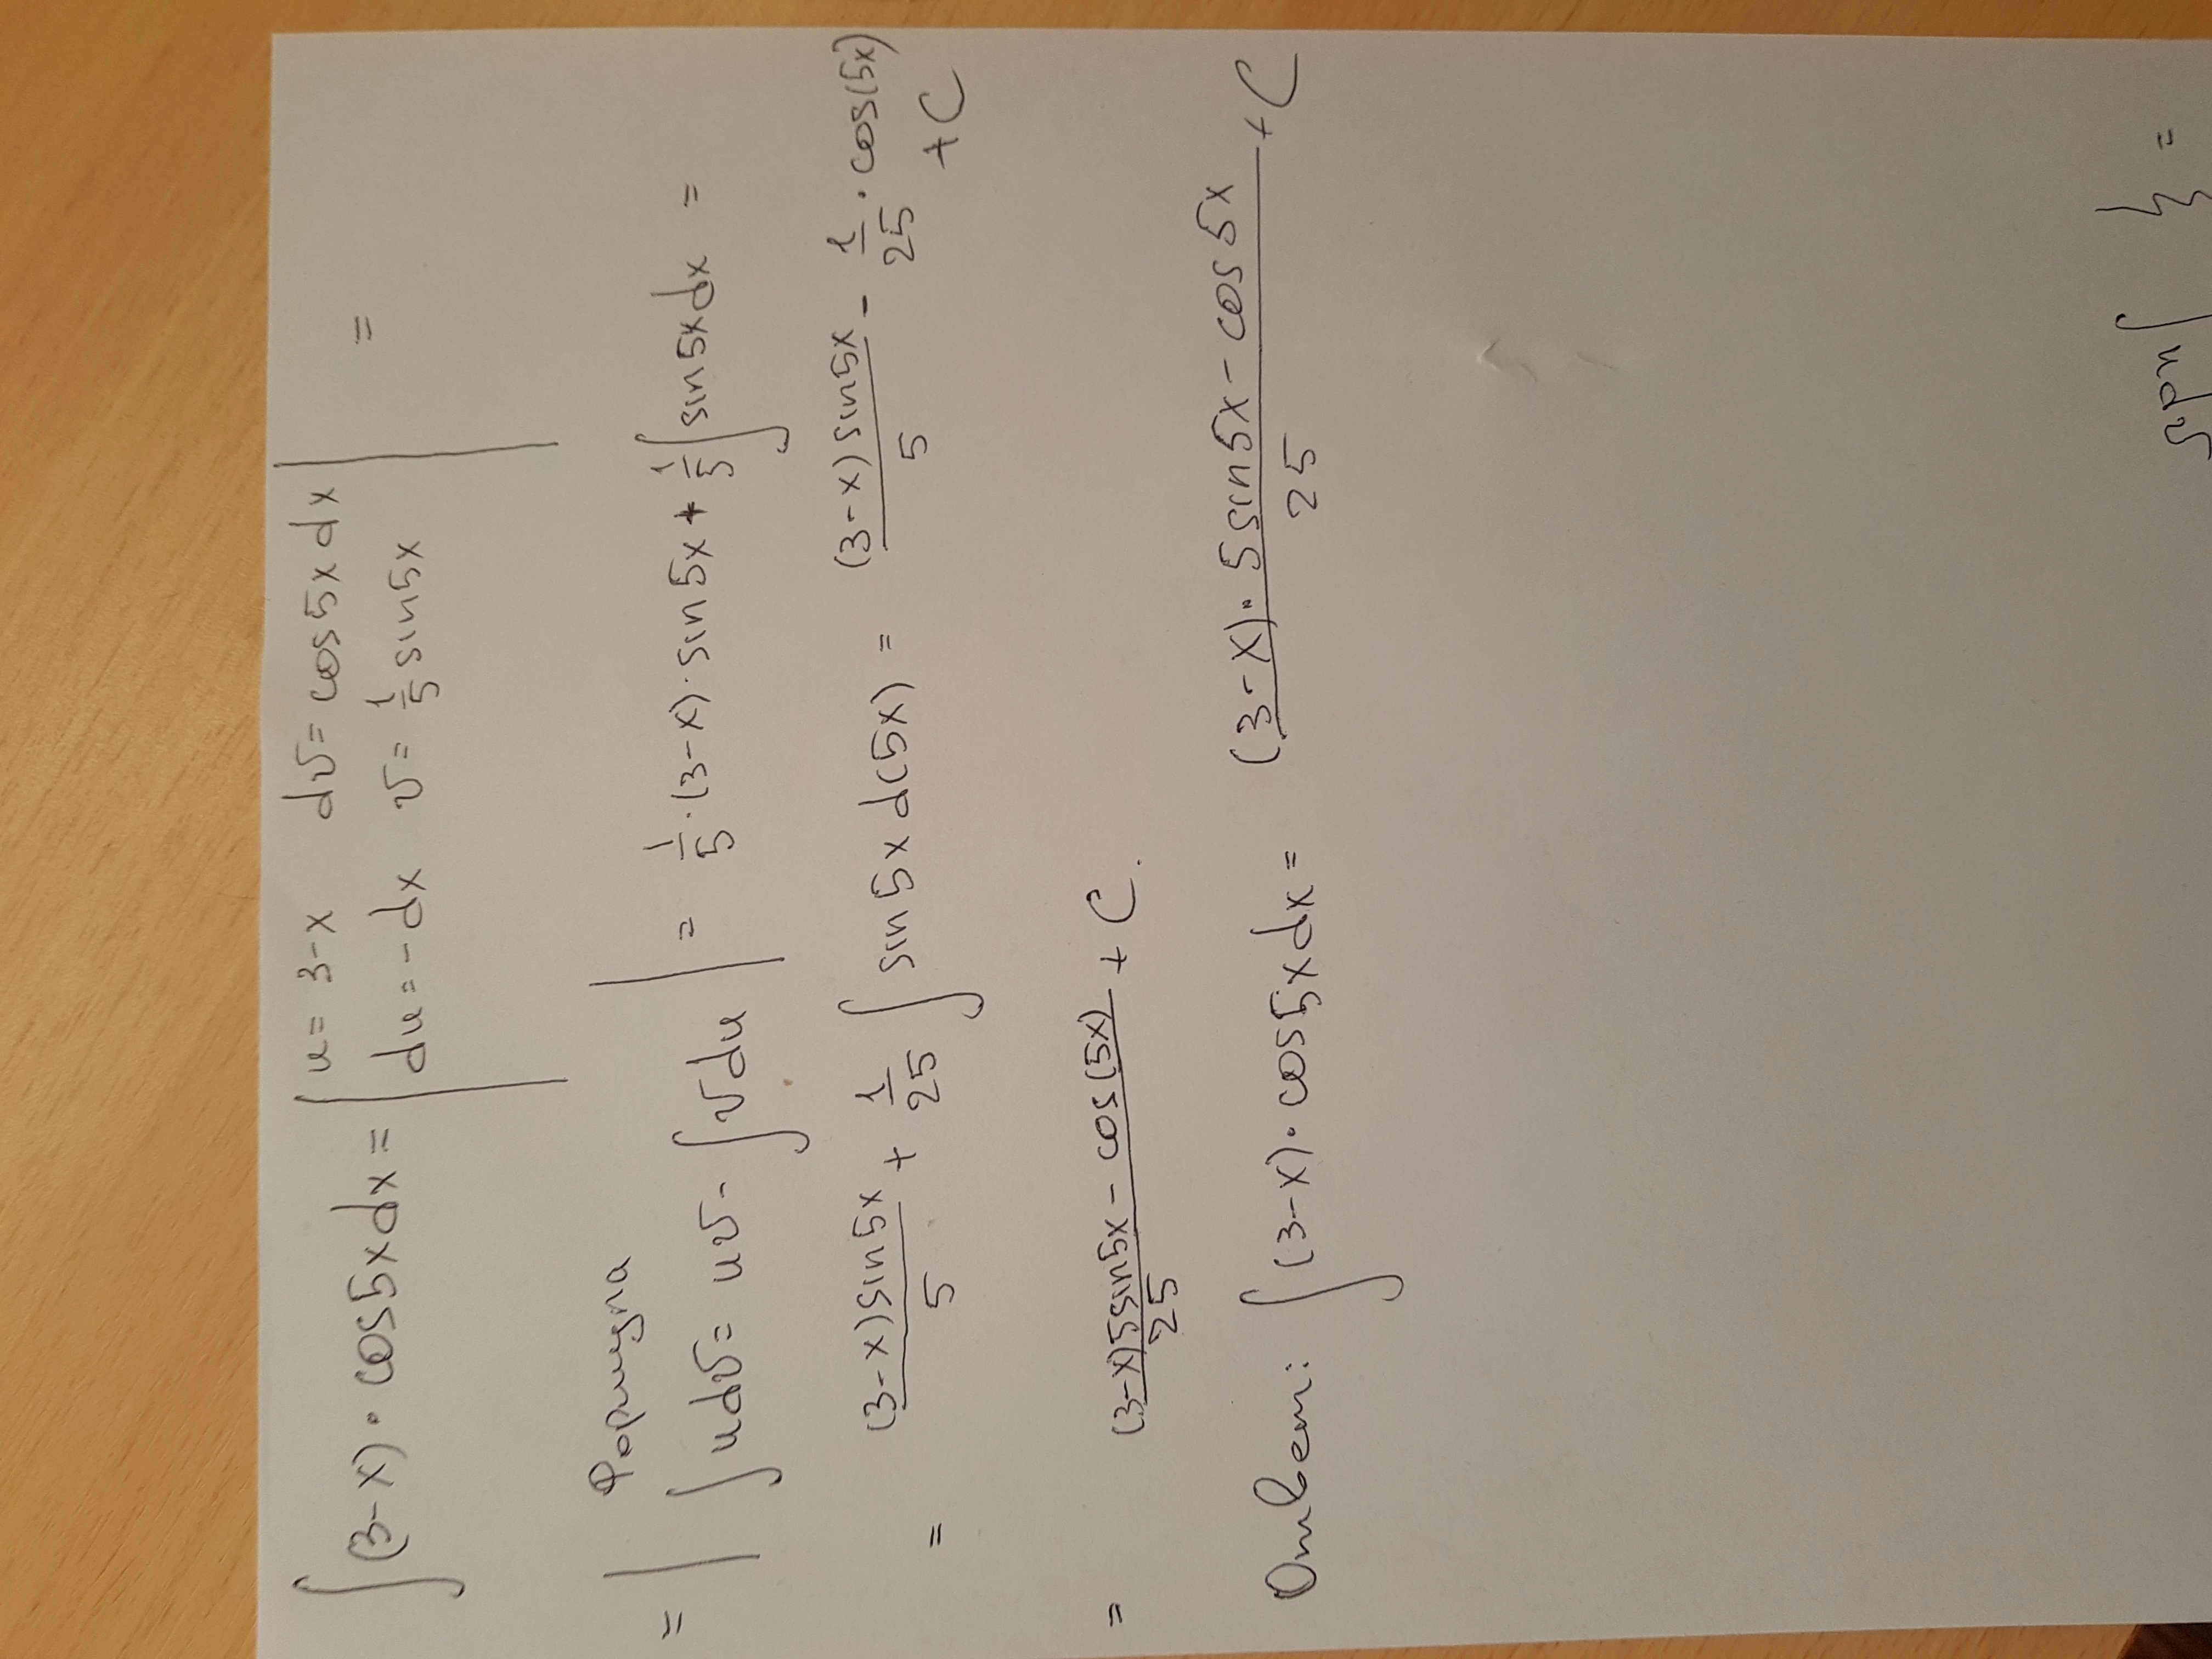 ∫(3-x)·cos5xdx = | u = 3-x dv = cos5xdx | =
du = -dx v = 1/5 sin5x
Формула
= | ∫udv = uv - ∫vdu | = 1/5·(3-x)·sin5x + 1/5 ∫sin5xdx =
= (3-x)sin5x/5 + 1/25 ∫sin5xd(5x) = (3-x)sin5x/5 - 1/25·cos(5x) + C
= (3-x)5sin5x - cos(5x)/25 + C.
Ответ: ∫(3-x)·cos5xdx = (3-x)·5sin5x - cos5x/25 + C